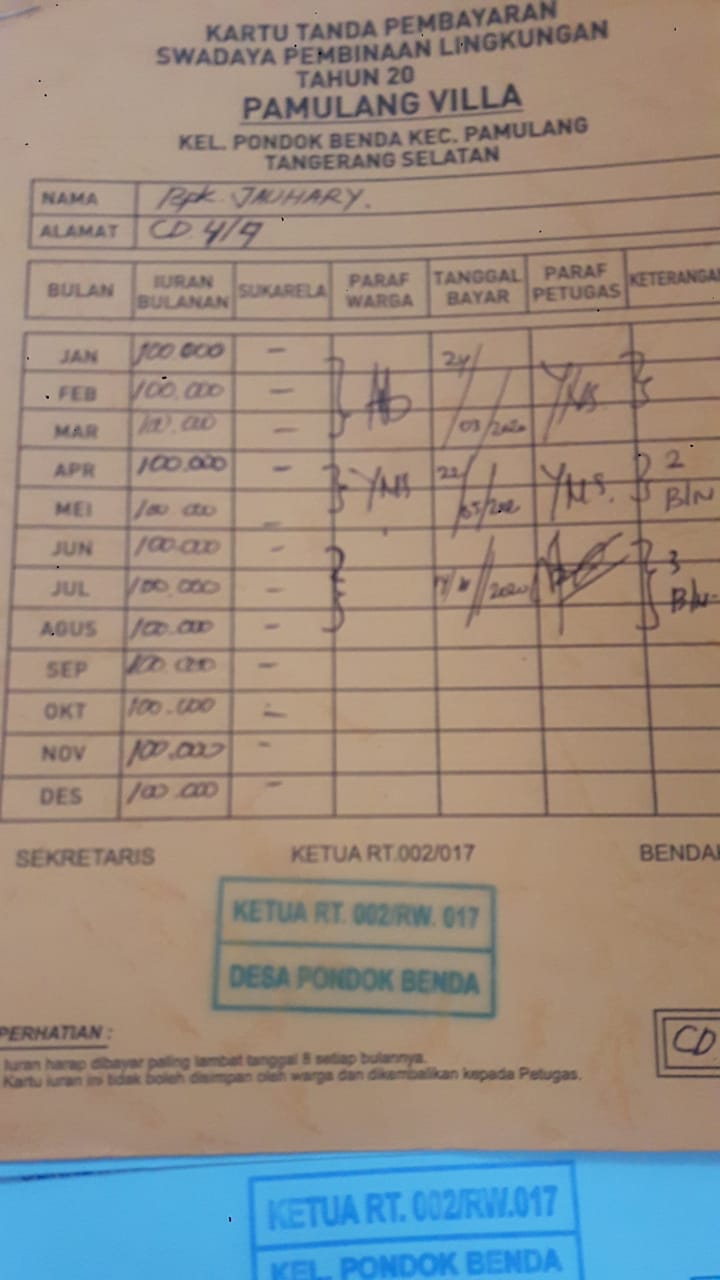 KARTU TANDA PEMBAYARAN
SWADAYA PEMBINAAN LINGKUNGAN
TAHUN 20
PAMULANG VILLA
KEL. PONDOK BENDA KEC. PAMULANG
TANGERANG SELATAN
NAMA Bpk. JAUHARY.
ALAMAT CD 4/9
BULAN IURAN BULANAN SUKARELA PARAF WARGA TANGGAL BAYAR PARAF PETUGAS KETERANGAN
JAN 100.000 - 24/
FEB 100.000 - YNS
MAR 100.000 - 03/2020
APR 100.000 - YNS 22/ YNS. 2
MEI 100.000 - 05/202 Bln
JUN 100.000 - 3
JUL 100.000 - 2020
AGUS 100.000 - Bln-
SEP 100.000 -
OKT 100.000 -
NOV 100.000 -
DES 100.000 -
SEKRETARIS KETUA RT.002/017 BENDA
KETUA RT. 002/RW. 017
DESA PONDOK BENDA
PERHATIAN :
Iuran harap dibayar paling lambat tanggal 8 setiap bulannya.
Kartu iuran ini tidak boleh disimpan oleh warga dan dikembalikan kepada Petugas.
CD
KETUA RT. 002/RW.017
KEL. PONDOK BENDA